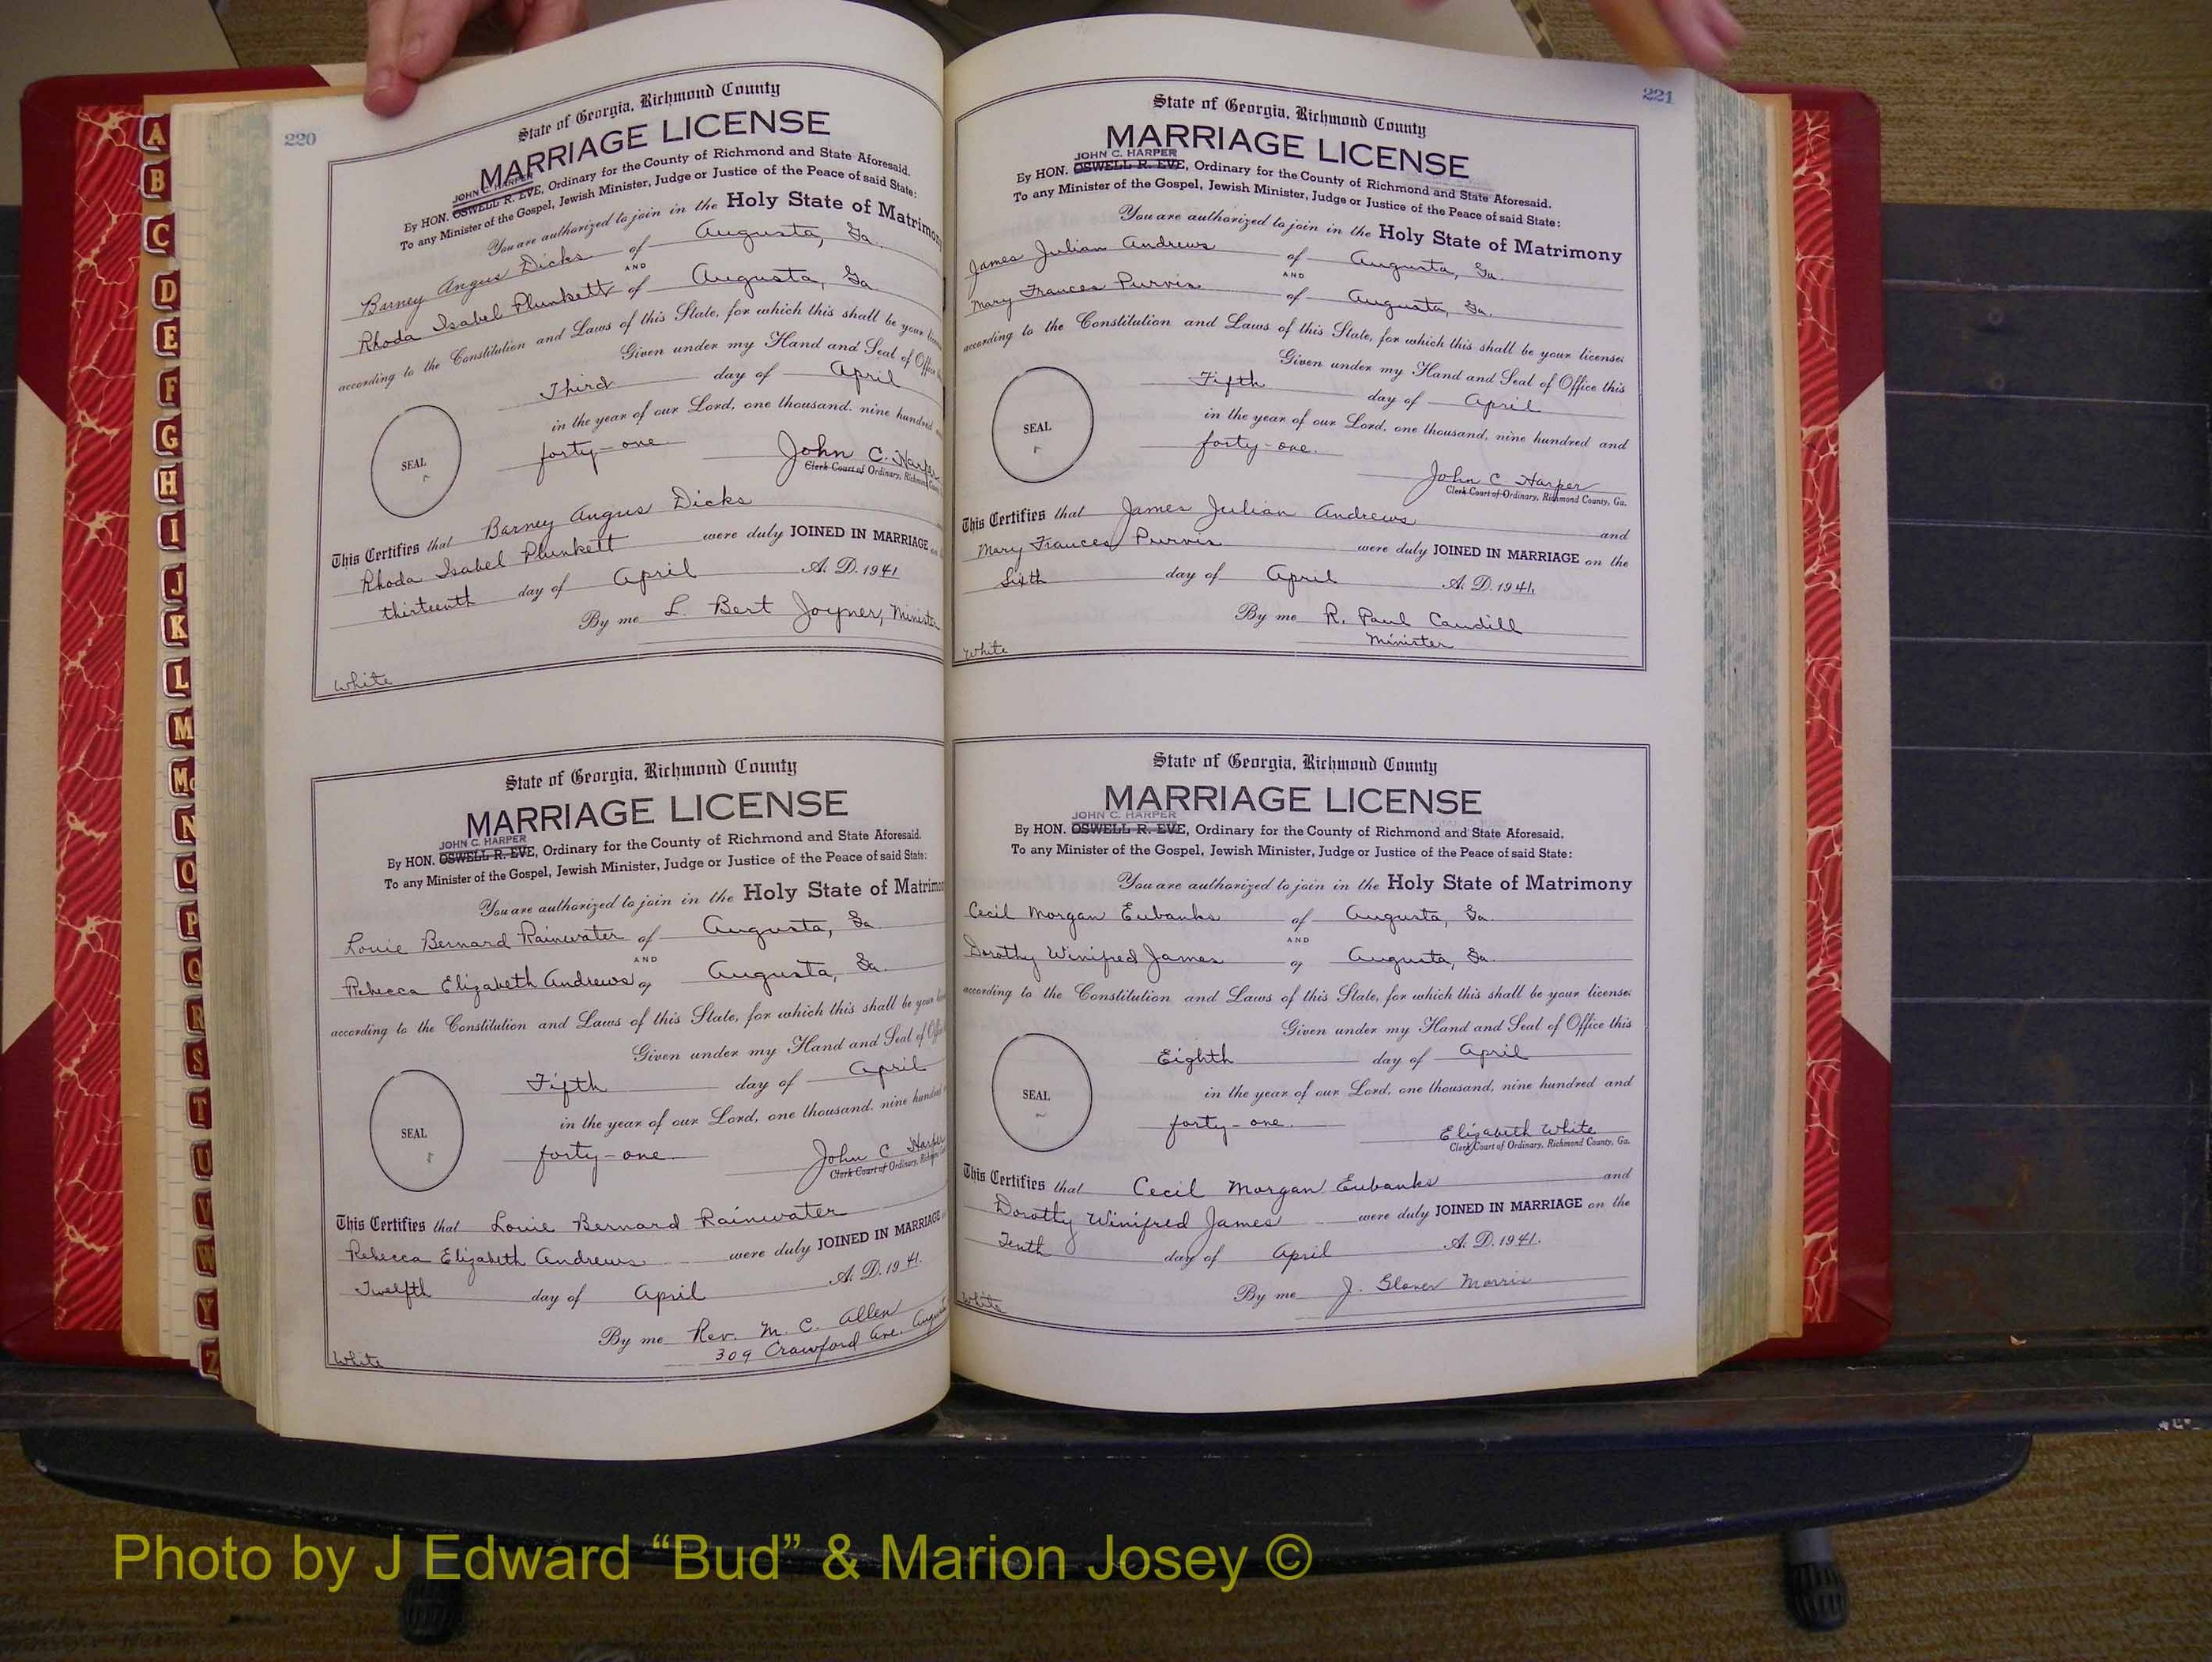 220
State of Georgia, Richmond County
MARRIAGE LICENSE
JOHN C. HARPER
By HON. OSWELL R. EVE, Ordinary for the County of Richmond and State Aforesaid.
To any Minister of the Gospel, Jewish Minister, Judge or Justice of the Peace of said State:
You are authorized to join in the Holy State of Matrimony
Barney Angus Dicks of Augusta, Ga.
AND
Rhoda Isabel Plunkett of Augusta, Ga
according to the Constitution and Laws of this State, for which this shall be your
Given under my Hand and Seal of Office
Third day of April
in the year of our Lord, one thousand. nine hundred
forty-one
SEAL
John C. Harper
Clerk Court of Ordinary, Richmond
This Certifies that Barney Angus Dicks
Rhoda Isabel Plunkett were duly JOINED IN MARRIAGE
thirteenth day of April A. D. 1941
By me L. Bert Joyner, Minister
White
State of Georgia, Richmond County
MARRIAGE LICENSE
JOHN C. HARPER
By HON. OSWELL R. EVE, Ordinary for the County of Richmond and State Aforesaid.
To any Minister of the Gospel, Jewish Minister, Judge or Justice of the Peace of said State:
You are authorized to join in the Holy State of Matrimo
Louie Bernard Rainwater of Augusta, Ga
AND
Rebecca Elizabeth Andrews of Augusta, Ga.
according to the Constitution and Laws of this State, for which this shall be your
Given under my Hand and Seal of
Fifth day of April
in the year of our Lord, one thousand. nine hundred
forty-one
SEAL
John C Harper
Clerk Court of Ordinary,
This Certifies that Louie Bernard Rainwater
Rebecca Elizabeth Andrews were duly JOINED IN MARRIAGE
Twelfth day of April A. D. 1941.
By me Rev. M. C. Allen
309 Crawford Ave. August
White
221
State of Georgia, Richmond County
MARRIAGE LICENSE
JOHN C. HARPER
By HON. OSWELL R. EVE, Ordinary for the County of Richmond and State Aforesaid.
To any Minister of the Gospel, Jewish Minister, Judge or Justice of the Peace of said State:
You are authorized to join in the Holy State of Matrimony
James Julian Andrews of Augusta, Ga.
AND
Mary Frances Purvis of Augusta, Ga.
according to the Constitution and Laws of this State, for which this shall be your license.
Given under my Hand and Seal of Office this
Fifth day of April
in the year of our Lord, one thousand, nine hundred and
forty-one.
SEAL
John C Harper
Clerk Court of Ordinary, Richmond County, Ga.
This Certifies that James Julian Andrews and
Mary Frances Purvis were duly JOINED IN MARRIAGE on the
Sixth day of April A. D. 1941.
By me R. Paul Caudill
Minister
White
State of Georgia, Richmond County
MARRIAGE LICENSE
JOHN C. HARPER
By HON. OSWELL R. EVE, Ordinary for the County of Richmond and State Aforesaid.
To any Minister of the Gospel, Jewish Minister, Judge or Justice of the Peace of said State:
You are authorized to join in the Holy State of Matrimony
Cecil Morgan Eubanks of Augusta, Ga.
AND
Dorothy Winifred James of Augusta, Ga.
according to the Constitution and Laws of this State, for which this shall be your license.
Given under my Hand and Seal of Office this
Eighth day of April
in the year of our Lord, one thousand, nine hundred and
forty-one.
SEAL
Elizabeth White
Clerk Court of Ordinary, Richmond County, Ga.
This Certifies that Cecil Morgan Eubanks and
Dorothy Winifred James were duly JOINED IN MARRIAGE on the
Tenth day of April A. D. 1941.
By me J. Glover Morris
White
A
B
C
D
E
F
G
H
I
J
K
L
M
Mc
N
O
P
Q
R
S
T
U
V
W
Y
Z
Photo by J Edward “Bud” & Marion Josey ©